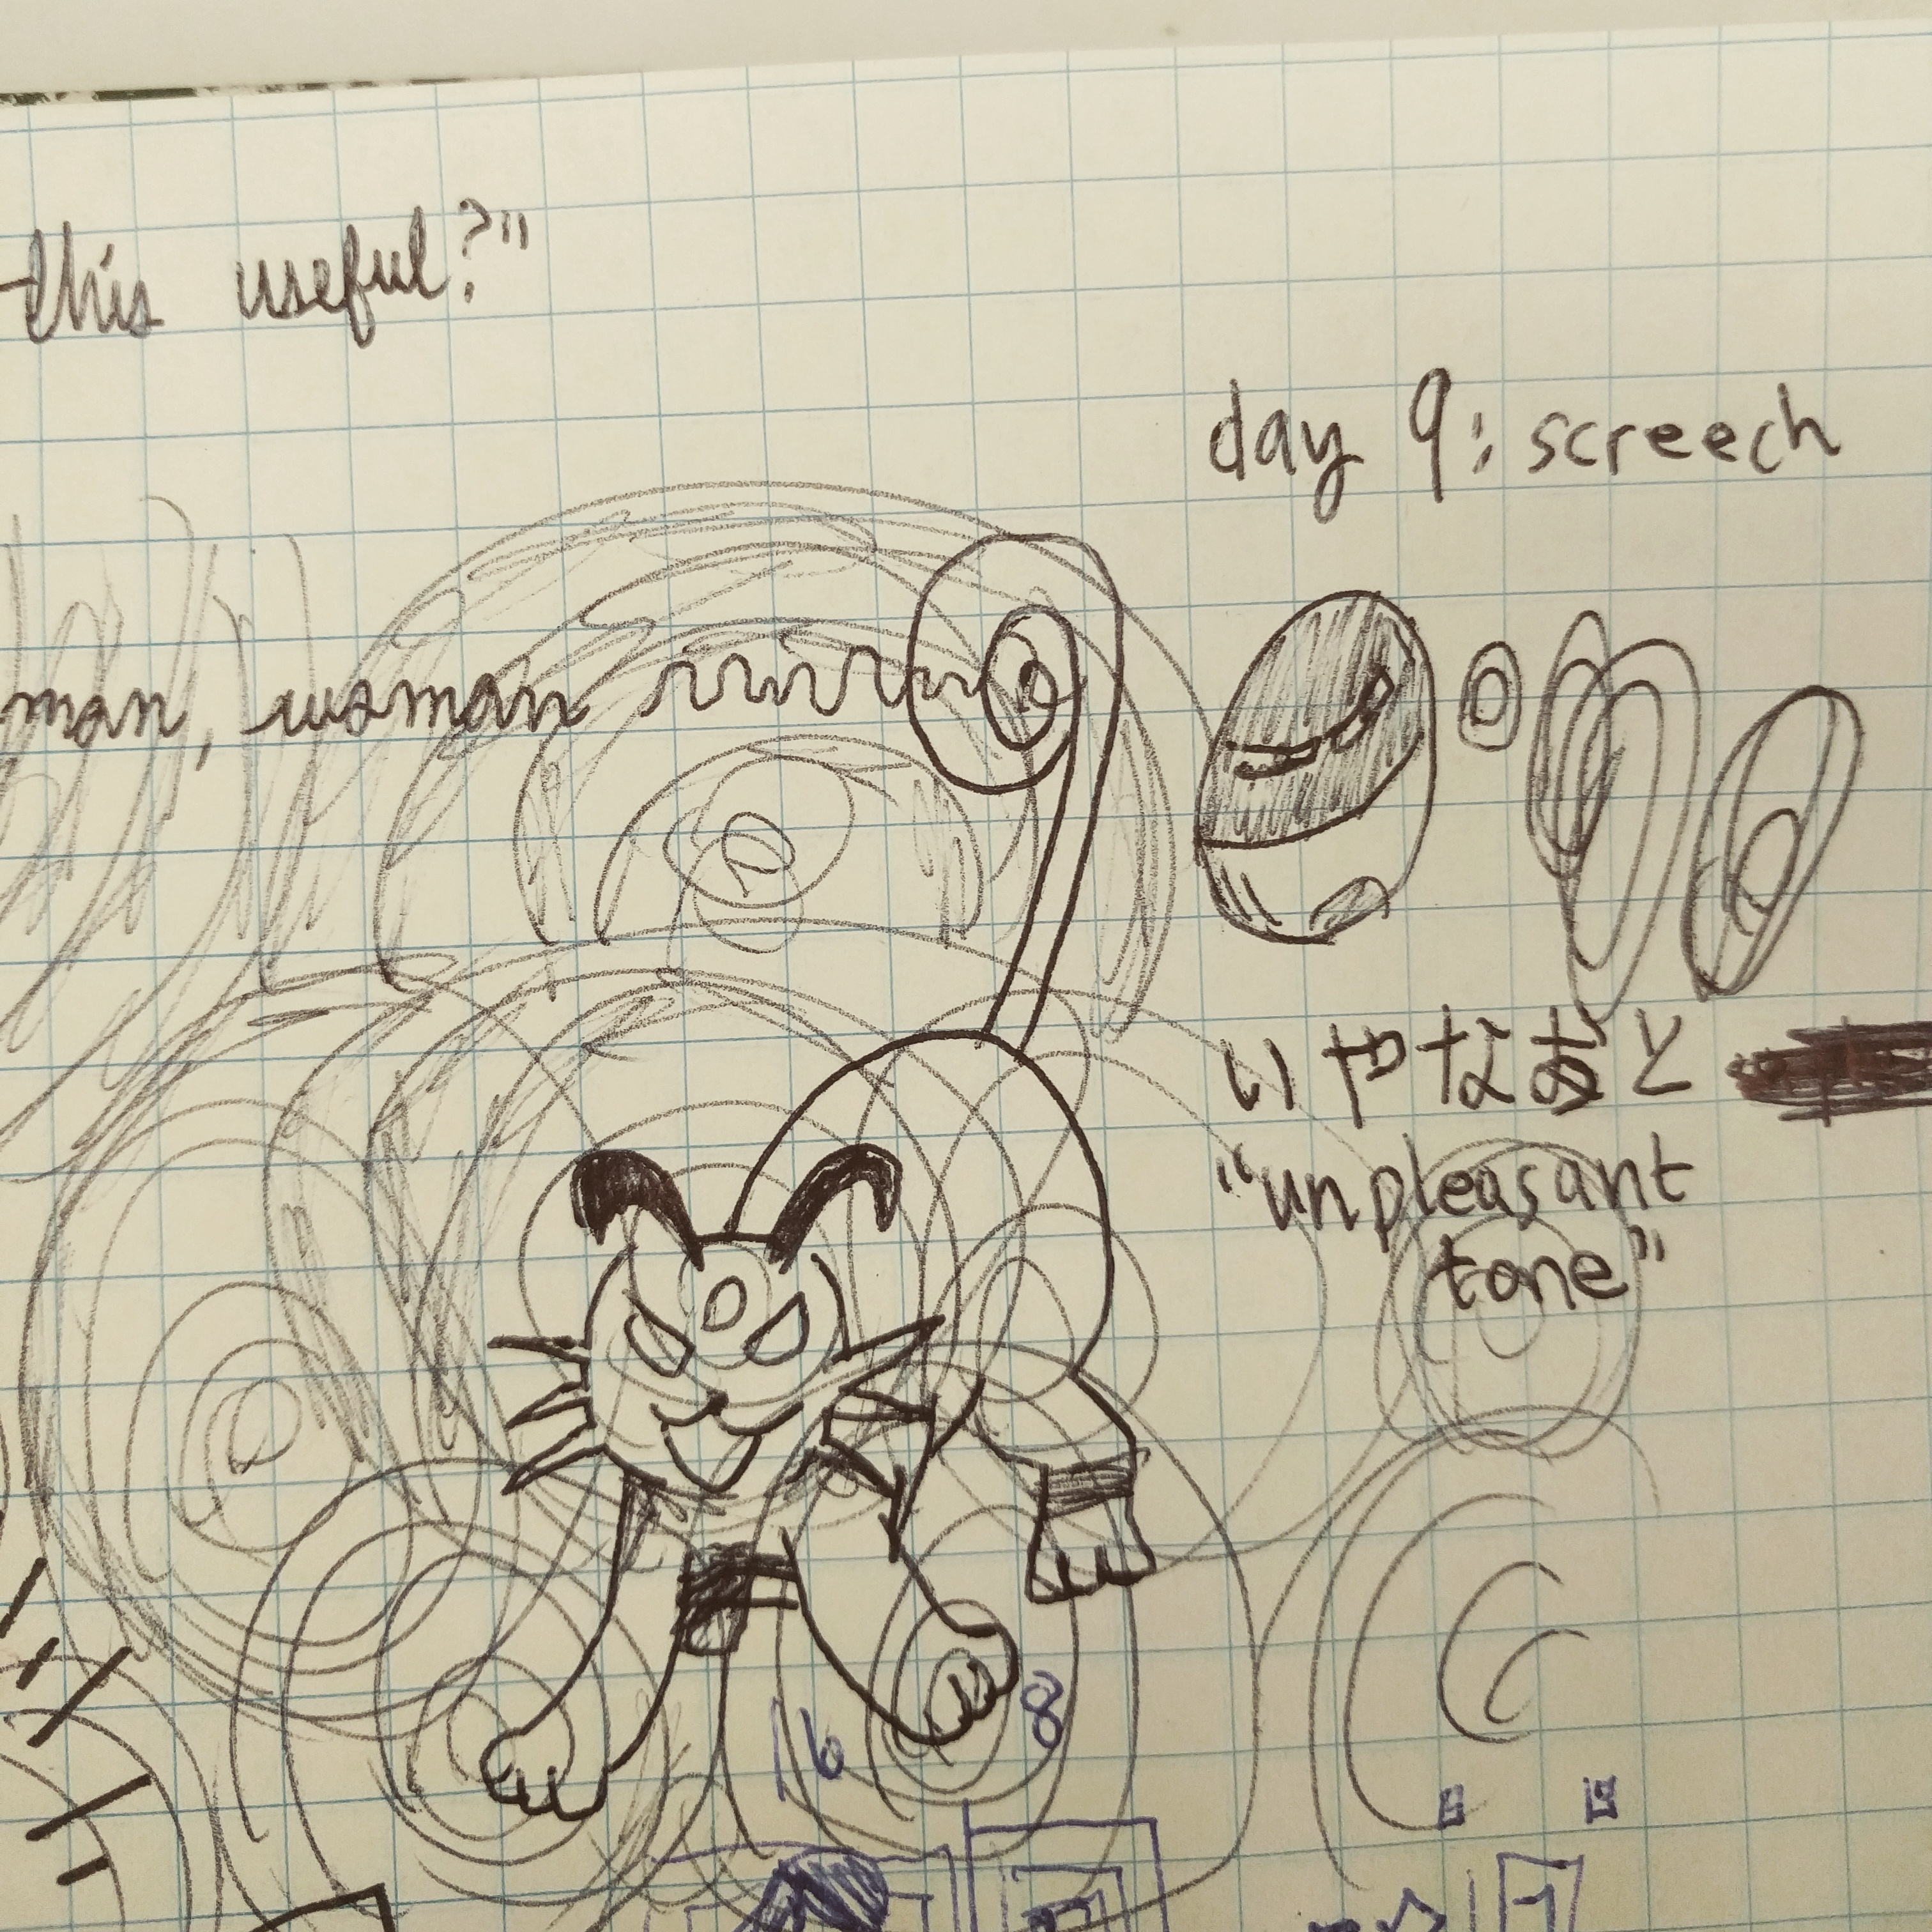 this useful?"
day 9: screech
man, woman
いやなおと
"unpleasant
tone"
16
8